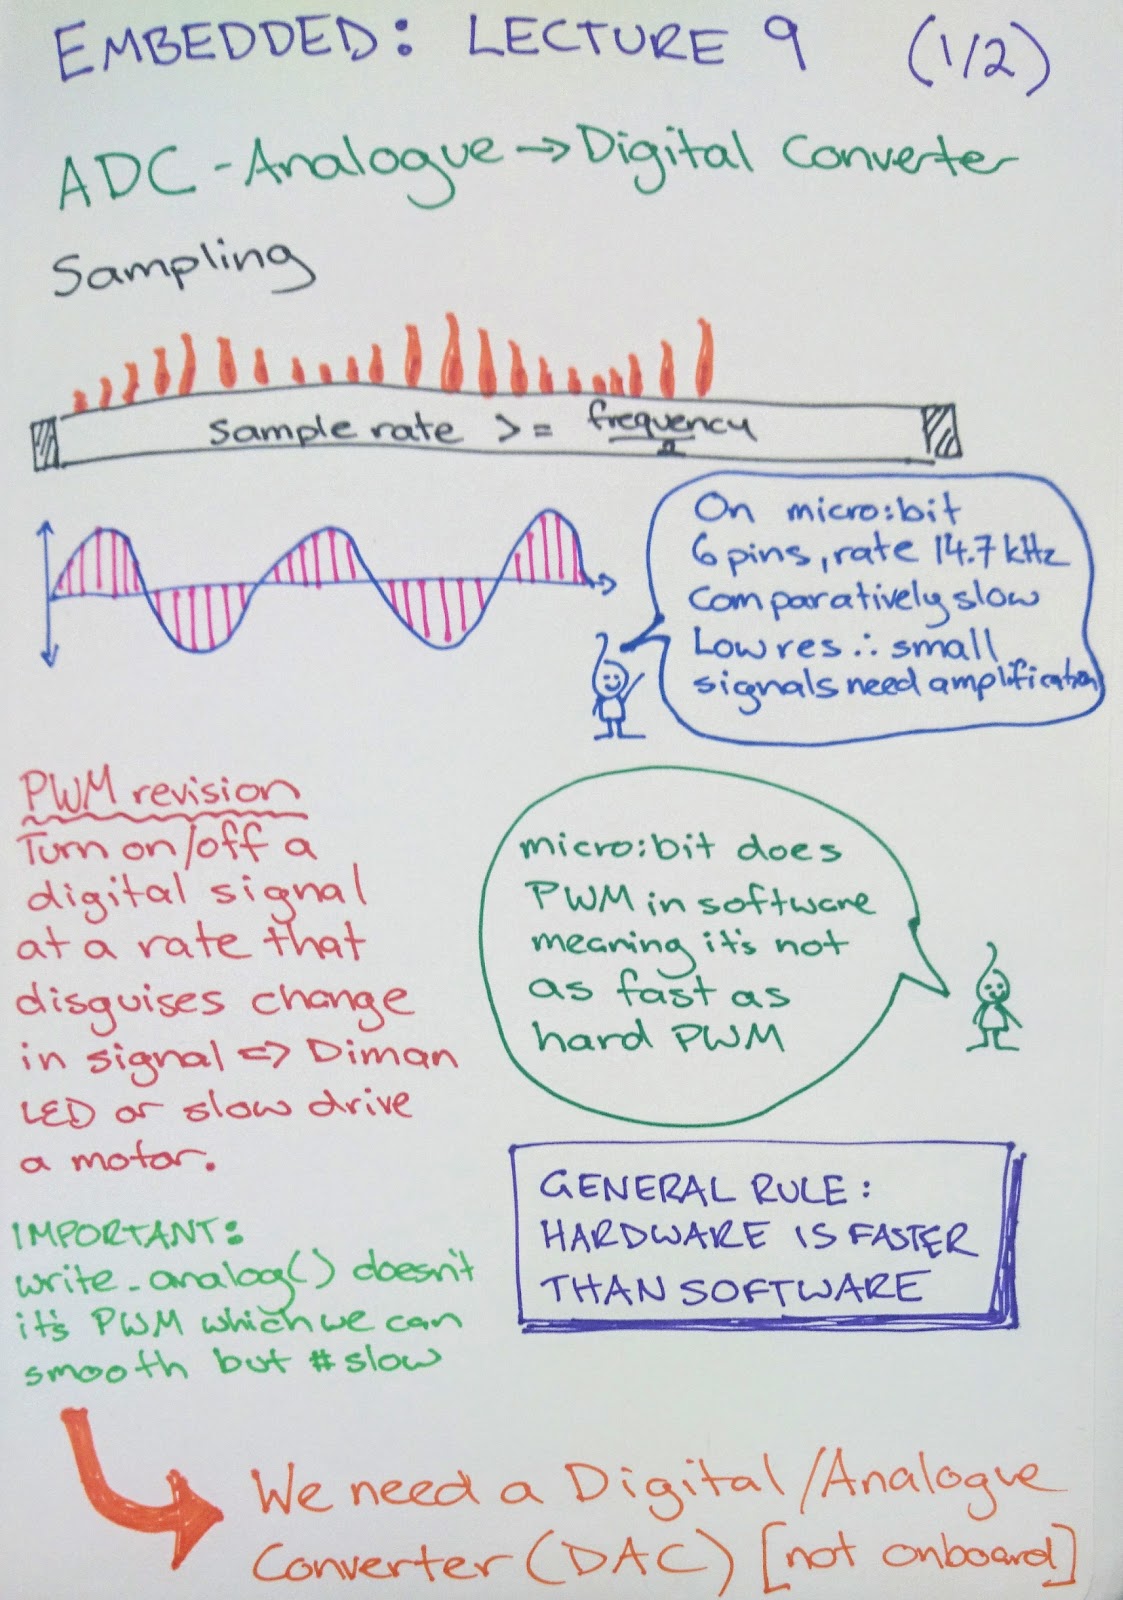 EMBEDDED: LECTURE 9 (1/2)
ADC - Analogue → Digital Converter
Sampling
sample rate >= frequency
2
On micro:bit
6 pins, rate 14.7 kHz
comparatively slow
Low res ∴ small
signals need amplification
PWM revision
Turn on/off a
digital signal
at a rate that
disguises change
in signal => Dim an
LED or slow drive
a motor.
micro:bit does
PWM in software
meaning it's not
as fast as
hard PWM
GENERAL RULE:
HARDWARE IS FASTER
THAN SOFTWARE
IMPORTANT:
write_analog() doesn't
it's PWM which we can
smooth but #slow
We need a Digital/Analogue
Converter (DAC) [not onboard]